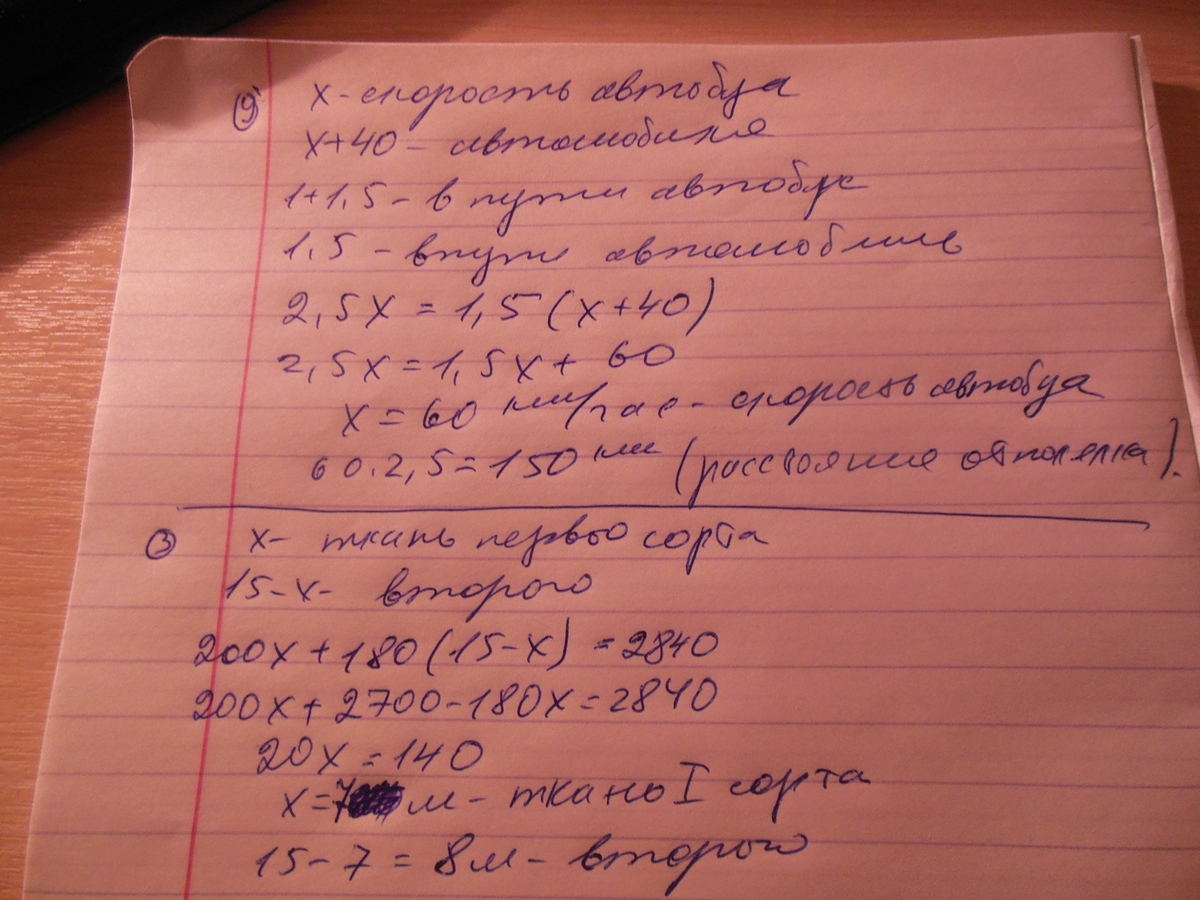 9) х - скорость автобуса
х+40 - автомобиля
1+1,5 - в пути автобус
1,5 - в пути автомобиль
2,5х = 1,5(х+40)
2,5х = 1,5х + 60
х = 60 км/час - скорость автобуса
60.2,5 = 150 км (расстояние от
3 х - ткань первого сорта
15-х - второго
200х + 180(15-х) = 2840
200х + 2700 - 180х = 2840
20х = 140
х = 7 м - ткано I сорта
15 - 7 = 8м - второго